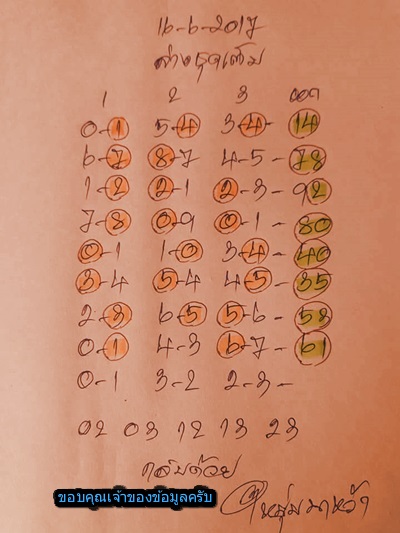 16-6-2017
ล่างชุดเต็ม
1 2 3 ออก
0-1 5-4 3-4- 14
6-7 8-7 4-5- 78
1-2 2-1 2-3- 92
7-8 0-9 0-1- 80
0-1 1-0 3-4- 40
3-4 5-4 4-5- 35
2-3 6-5 5-6- 53
0-1 4-3 6-7- 61
0-1 3-2 2-3-
02 03 12 13 23
กลับด้วย
ขอบคุณเจ้าของข้อมูลครับ